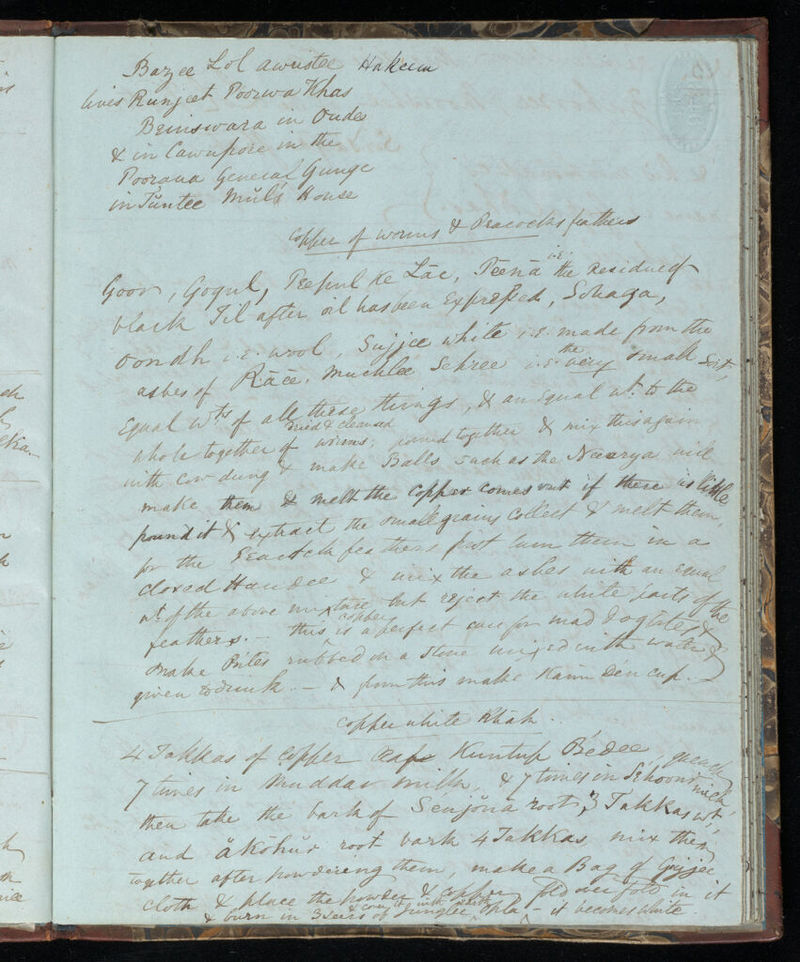 Bazee Lol Awustee Hakeem
lives Runjeet Poorwa Khas
Beinswara in Oudes
& in Cawnpore in the
Poorana General Gunge
in Suntee Mul's House
Copper of worms & Peacocks feathers
Goor, Gogul, Peepul ke Lāc, Peenā i.e. the residue of
black Til after oil has been Expressed, Sohaga,
Oondh i.e. wool, Sujjee white i.e. made from the
ashes of Rāēē. Muchlee Sehree i.e. the very small Sort,
Equal wts of all these things, & an equal wt. to the
whole together of dried & cleaned worms, pound together & mix this again
with Cow dung & make Balls such as the Neearya will
make them & melt the copper comes out if there is little
pound it & extract the small grains collect & melt them,
for the Peacock feathers first burn them in a
closed Handee & mix the ashes with an equal
wt. of the above mixture but reject the white parts of the
feathers. — this copper is a perfect cure for mad dog bites &
Snake Bites rubbed on a stone mixed with water &
given to drink. — & from this make cup.
Copper white Khāk.
4 Takkas of Copper Kuntup Bēdee, quench
7 times in Muddar milk & 7 times in milk,
then take the bark of Senjōna root, 3 Takkas wt,
and ākōhur root bark 4 Takkas, mix them
together after powdering them, make a Bag of Gujjee
cloth & place the powder & copper fold over fold in it
& cover it with & burn in 3 Seers of Junglee Opla — it becomes white.